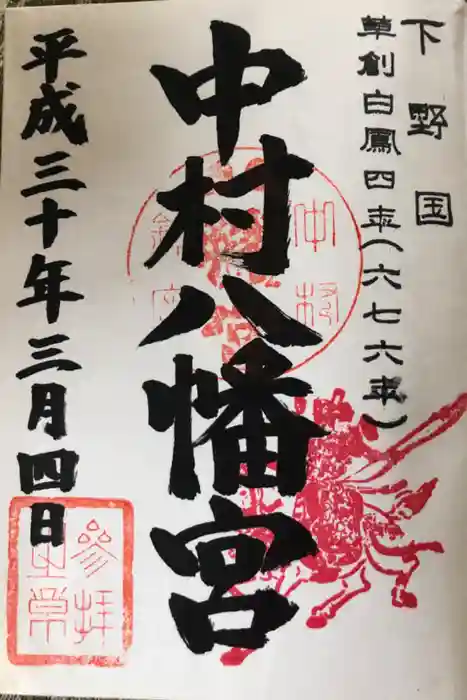 下野国
草創白鳳四年(六七六年)
中村八幡宮
平成三十年三月四日
参拝